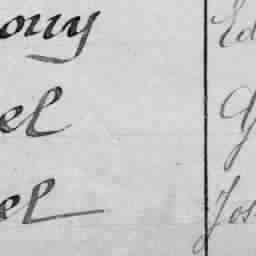 ony Ed
el G
el Jos